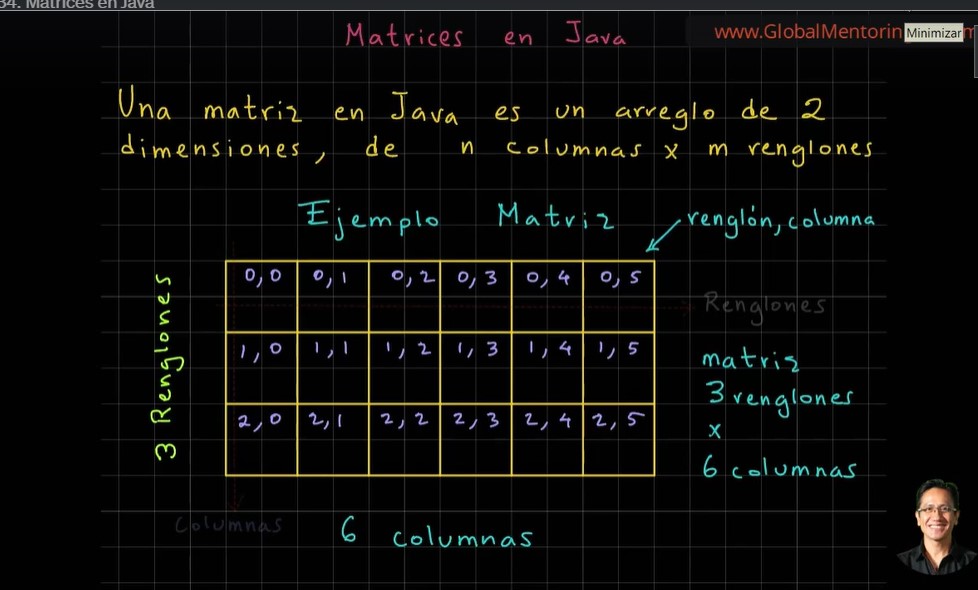 34. Matrices en Java
Matrices en Java
www.GlobalMentorin
Minimizar
Una matriz en Java es un arreglo de 2
dimensiones, de n columnas x m renglones
Ejemplo Matriz
renglón, columna
0,0 0,1 0,2 0,3 0,4 0,5
1,0 1,1 1,2 1,3 1,4 1,5
2,0 2,1 2,2 2,3 2,4 2,5
3 Renglones
Renglones
matriz
3 renglones
x
6 columnas
Columnas
6 columnas